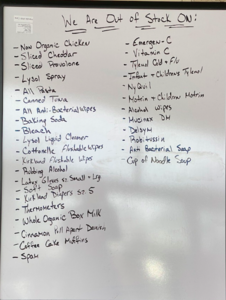 We Are Out of Stock On:
- Non Organic Chicken
- Sliced Cheddar
- Sliced Provolone
- Lysol Spray
- All Pasta
- Canned Tuna
- All Anti-Bacterial Wipes
- Baking Soda
- Bleach
- Lysol Liquid Cleaner
- Cottonelle Flushable Wipes
- Kirkland Flushable Wipes
- Rubbing Alcohol
- Latex Gloves sz: Small + Lrg
- Soft Soap
- Kirkland Diapers sz: 5
- Thermometers
- Whole Organic Box Milk
- Cinnamon Pull Apart
- Coffee Cake Muffins
- Spam
- Emergen-C
- Vitamin C
- Tylenol Cold + Flu
- Infant + Childrens Tylenol
- NyQuil
- Motrin + Children Motrin
- Alcohol Wipes
- Mucinex DM
- Delsym
- Robitussin
- Anti Bacterial Soap
- Cup of Noodle Soup